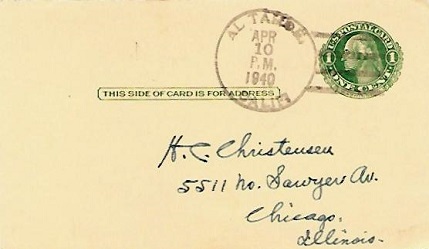 AL TAHOE,
APR
10
P.M.
1940
CALIF.
U.S. POSTAL CARD
1 1
ONE CENT
THIS SIDE OF CARD IS FOR ADDRESS
H. C. Christensen
5511 No. Sawyer Av.
Chicago,
Illinois.